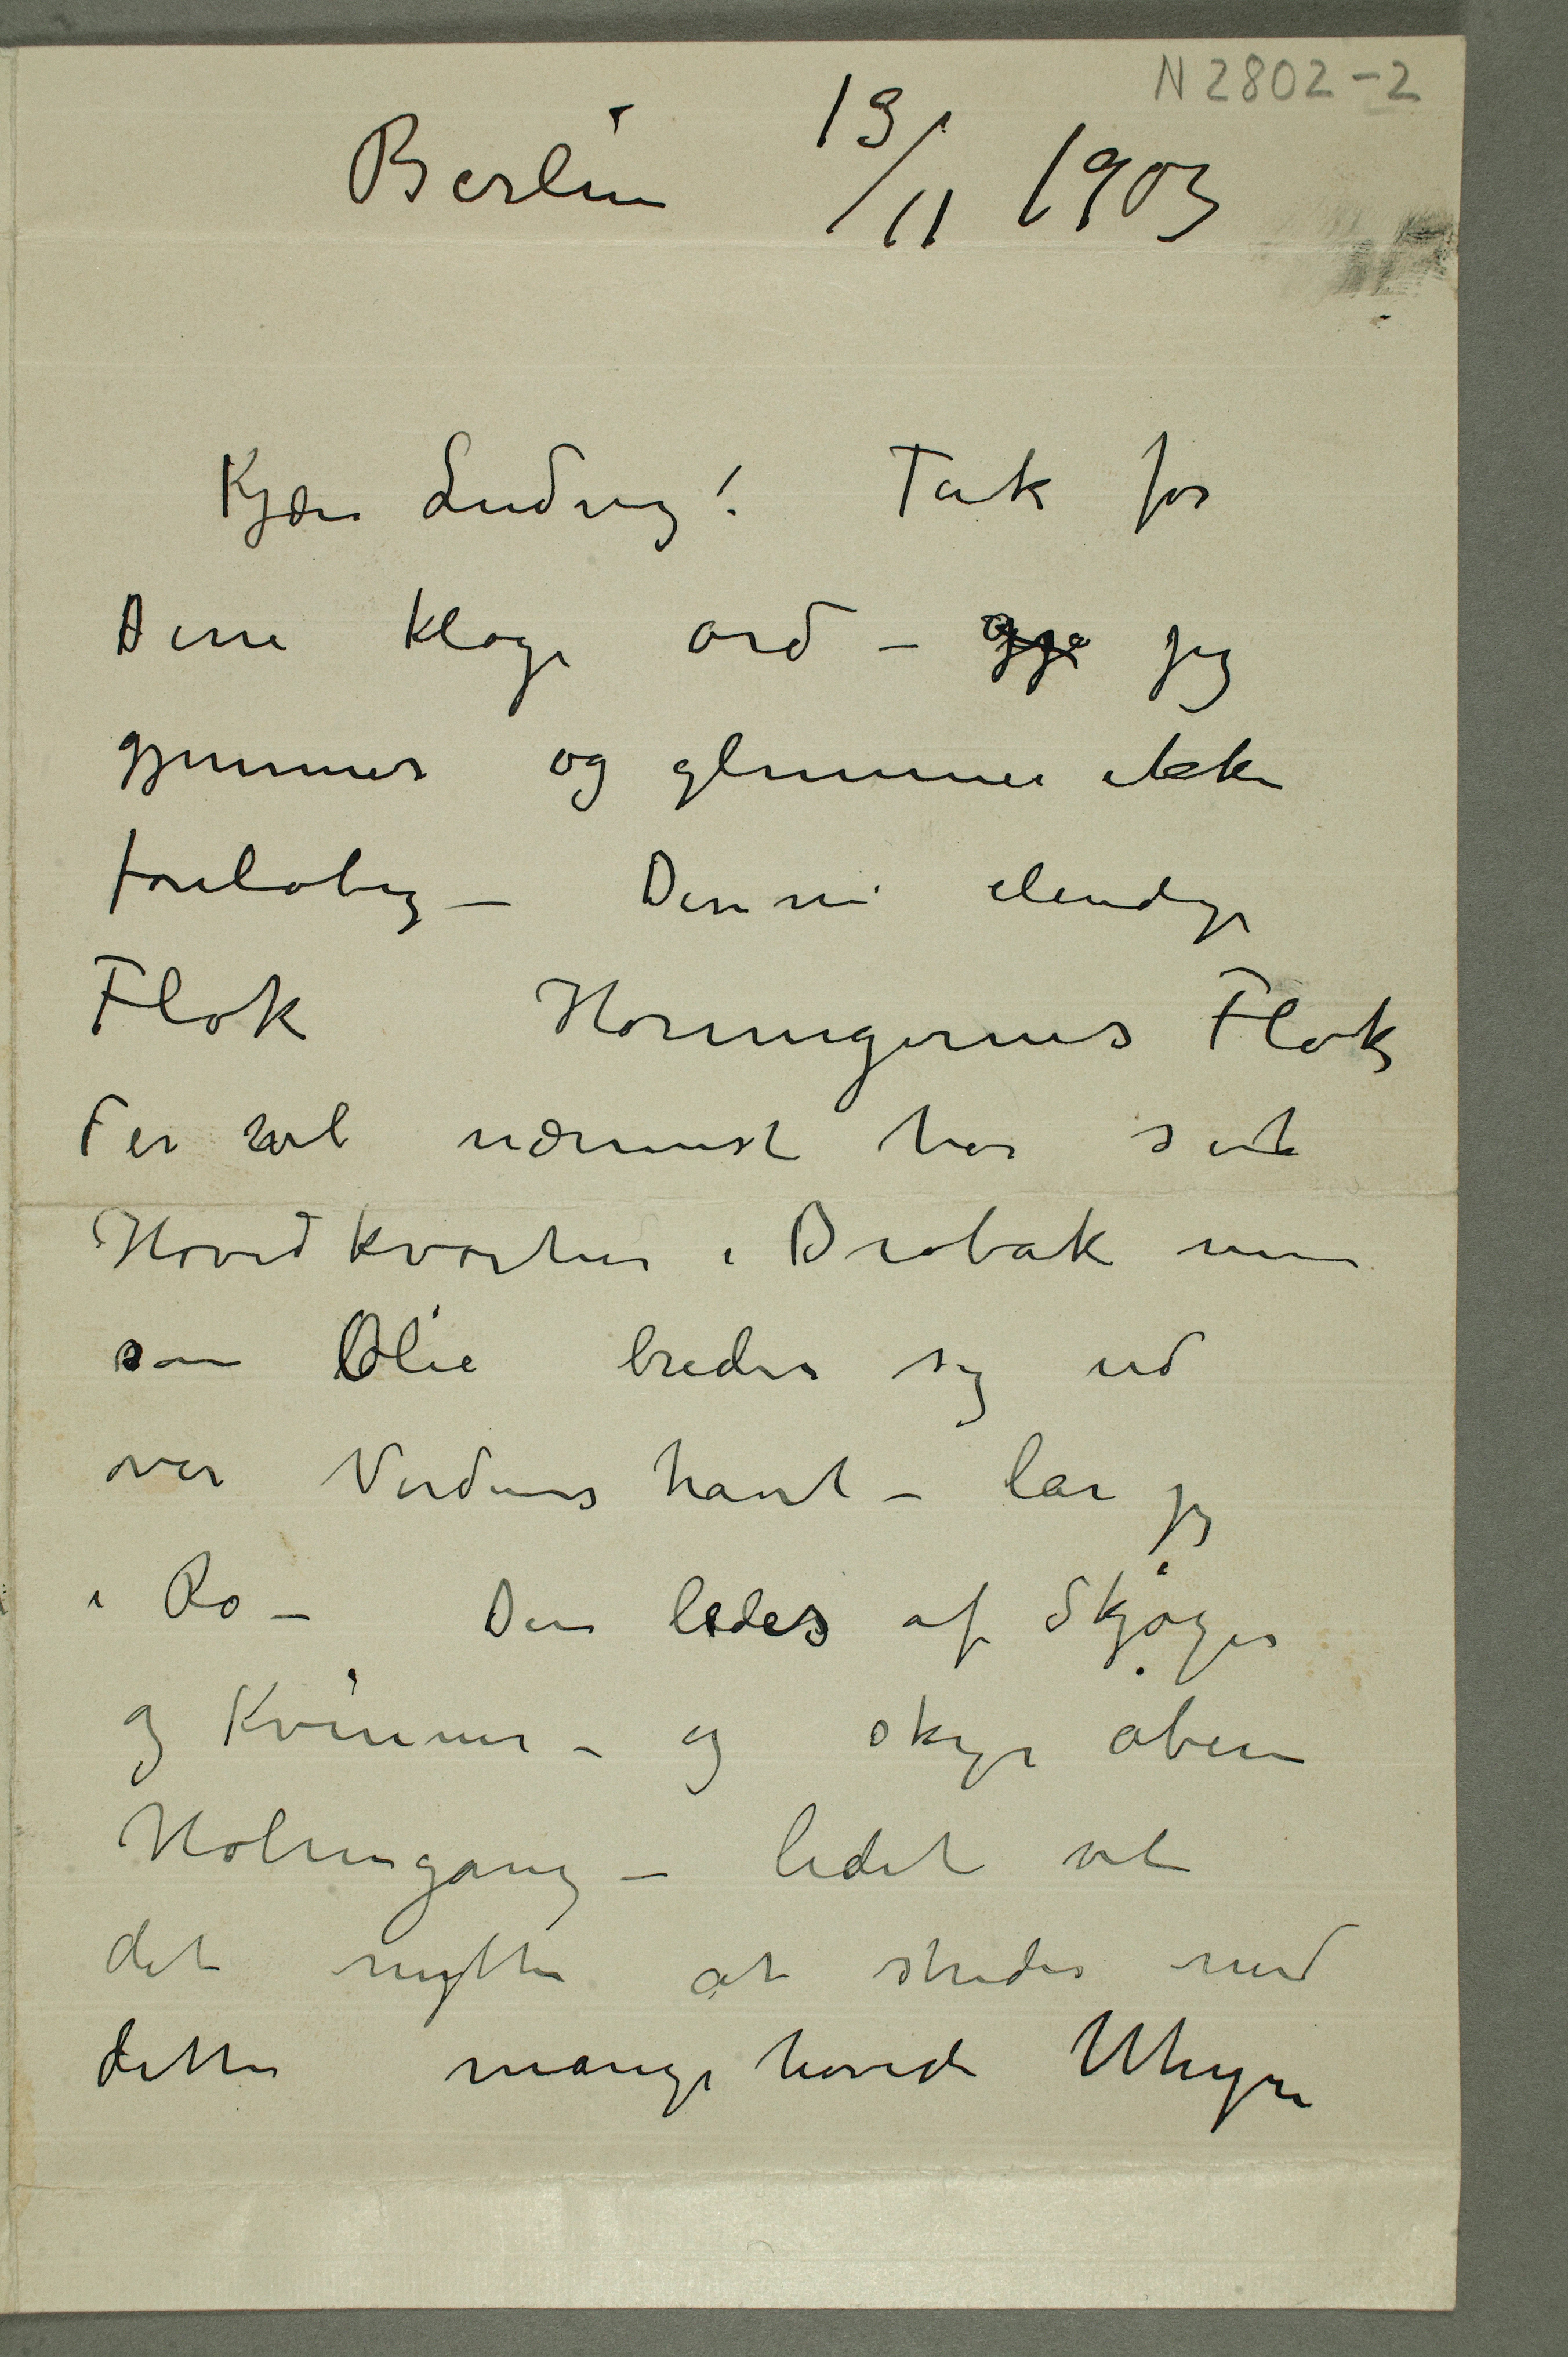 N 2802-2
Berlin 19/11 1903
Kjære Ludvig! Tak for
Dine kloge ord – jeg
gjemmer og glemmer ikke
foreløbig – Denne elendige
Flok Horungernes Flok
der vel nærmest har sit
Hovedkvarter i Drøbak men
som Olie breder sig ud
over Verdenshavet – lar jeg
i Ro – Den ledes af Skjøger
og Kvinner – og skyr åben
Holmgang – lidet vil
det nytte at strides med
dette mangehovede Uhyre